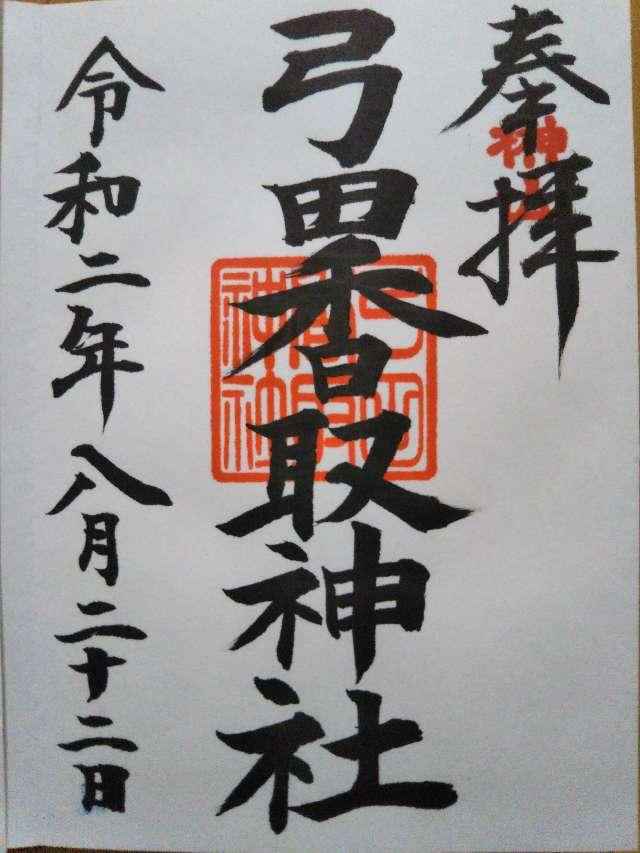 奉拝
神山
弓田香取神社
令和二年八月二十二日